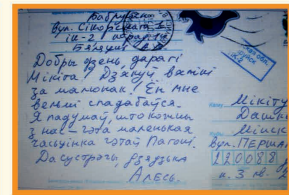 Бабруйск
вул. Сікорскага 1
ІК-2
Бяляцкі А.В.
Добры дзень, дарагі
Мікіта! Дзякуй вялікі
за малюнак! Ён мне
вельмі спадабаўся.
Я падумаў, што кожны
з нас - гэта маленькая
часцінка гэтай Пагоні.
Да сустрэчы, дзядзька
Алесь.
Мікіту
Мінск
вул. ПЕРША
120088